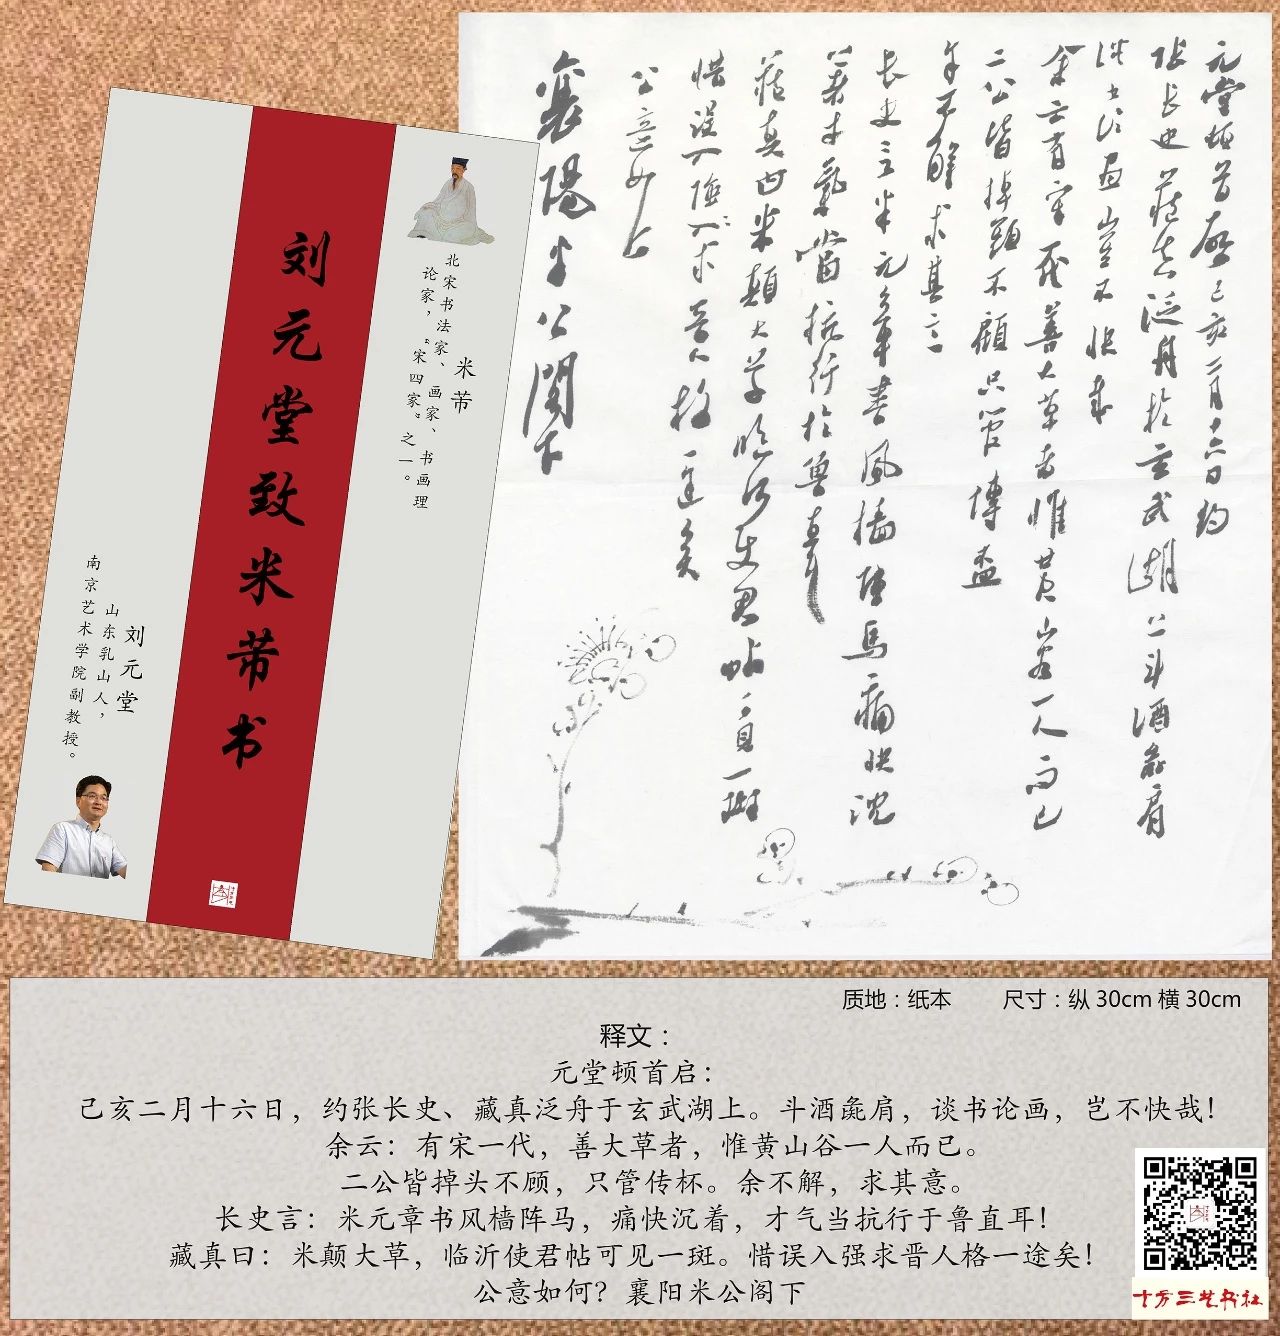 刘元堂致米芾书
米芾
北宋书法家、画家、书画理
论家，“宋四家”之一。
刘元堂
山东乳山人，
南京艺术学院副教授。
元堂顿首启己亥二月十六日约
张长史藏真泛舟于玄武湖上斗酒彘肩
谈书论画岂不快哉
余云有宋一代善大草者惟黄山谷一人而已
二公皆掉头不顾只管传杯
余不解求其意
长史言米元章书风樯阵马痛快沉
着才气当抗行于鲁直耳
藏真曰米颠大草临沂使君帖可见一斑
惜误入强求晋人格一途矣
公意如何
襄阳米公阁下
质地：纸本 尺寸：纵30cm 横30cm
释文：
元堂顿首启：
己亥二月十六日，约张长史、藏真泛舟于玄武湖上。斗酒彘肩，谈书论画，岂不快哉！
余云：有宋一代，善大草者，惟黄山谷一人而已。
二公皆掉头不顾，只管传杯。余不解，求其意。
长史言：米元章书风樯阵马，痛快沉着，才气当抗行于鲁直耳！
藏真曰：米颠大草，临沂使君帖可见一斑。惜误入强求晋人格一途矣！
公意如何？襄阳米公阁下
十方三艺书社